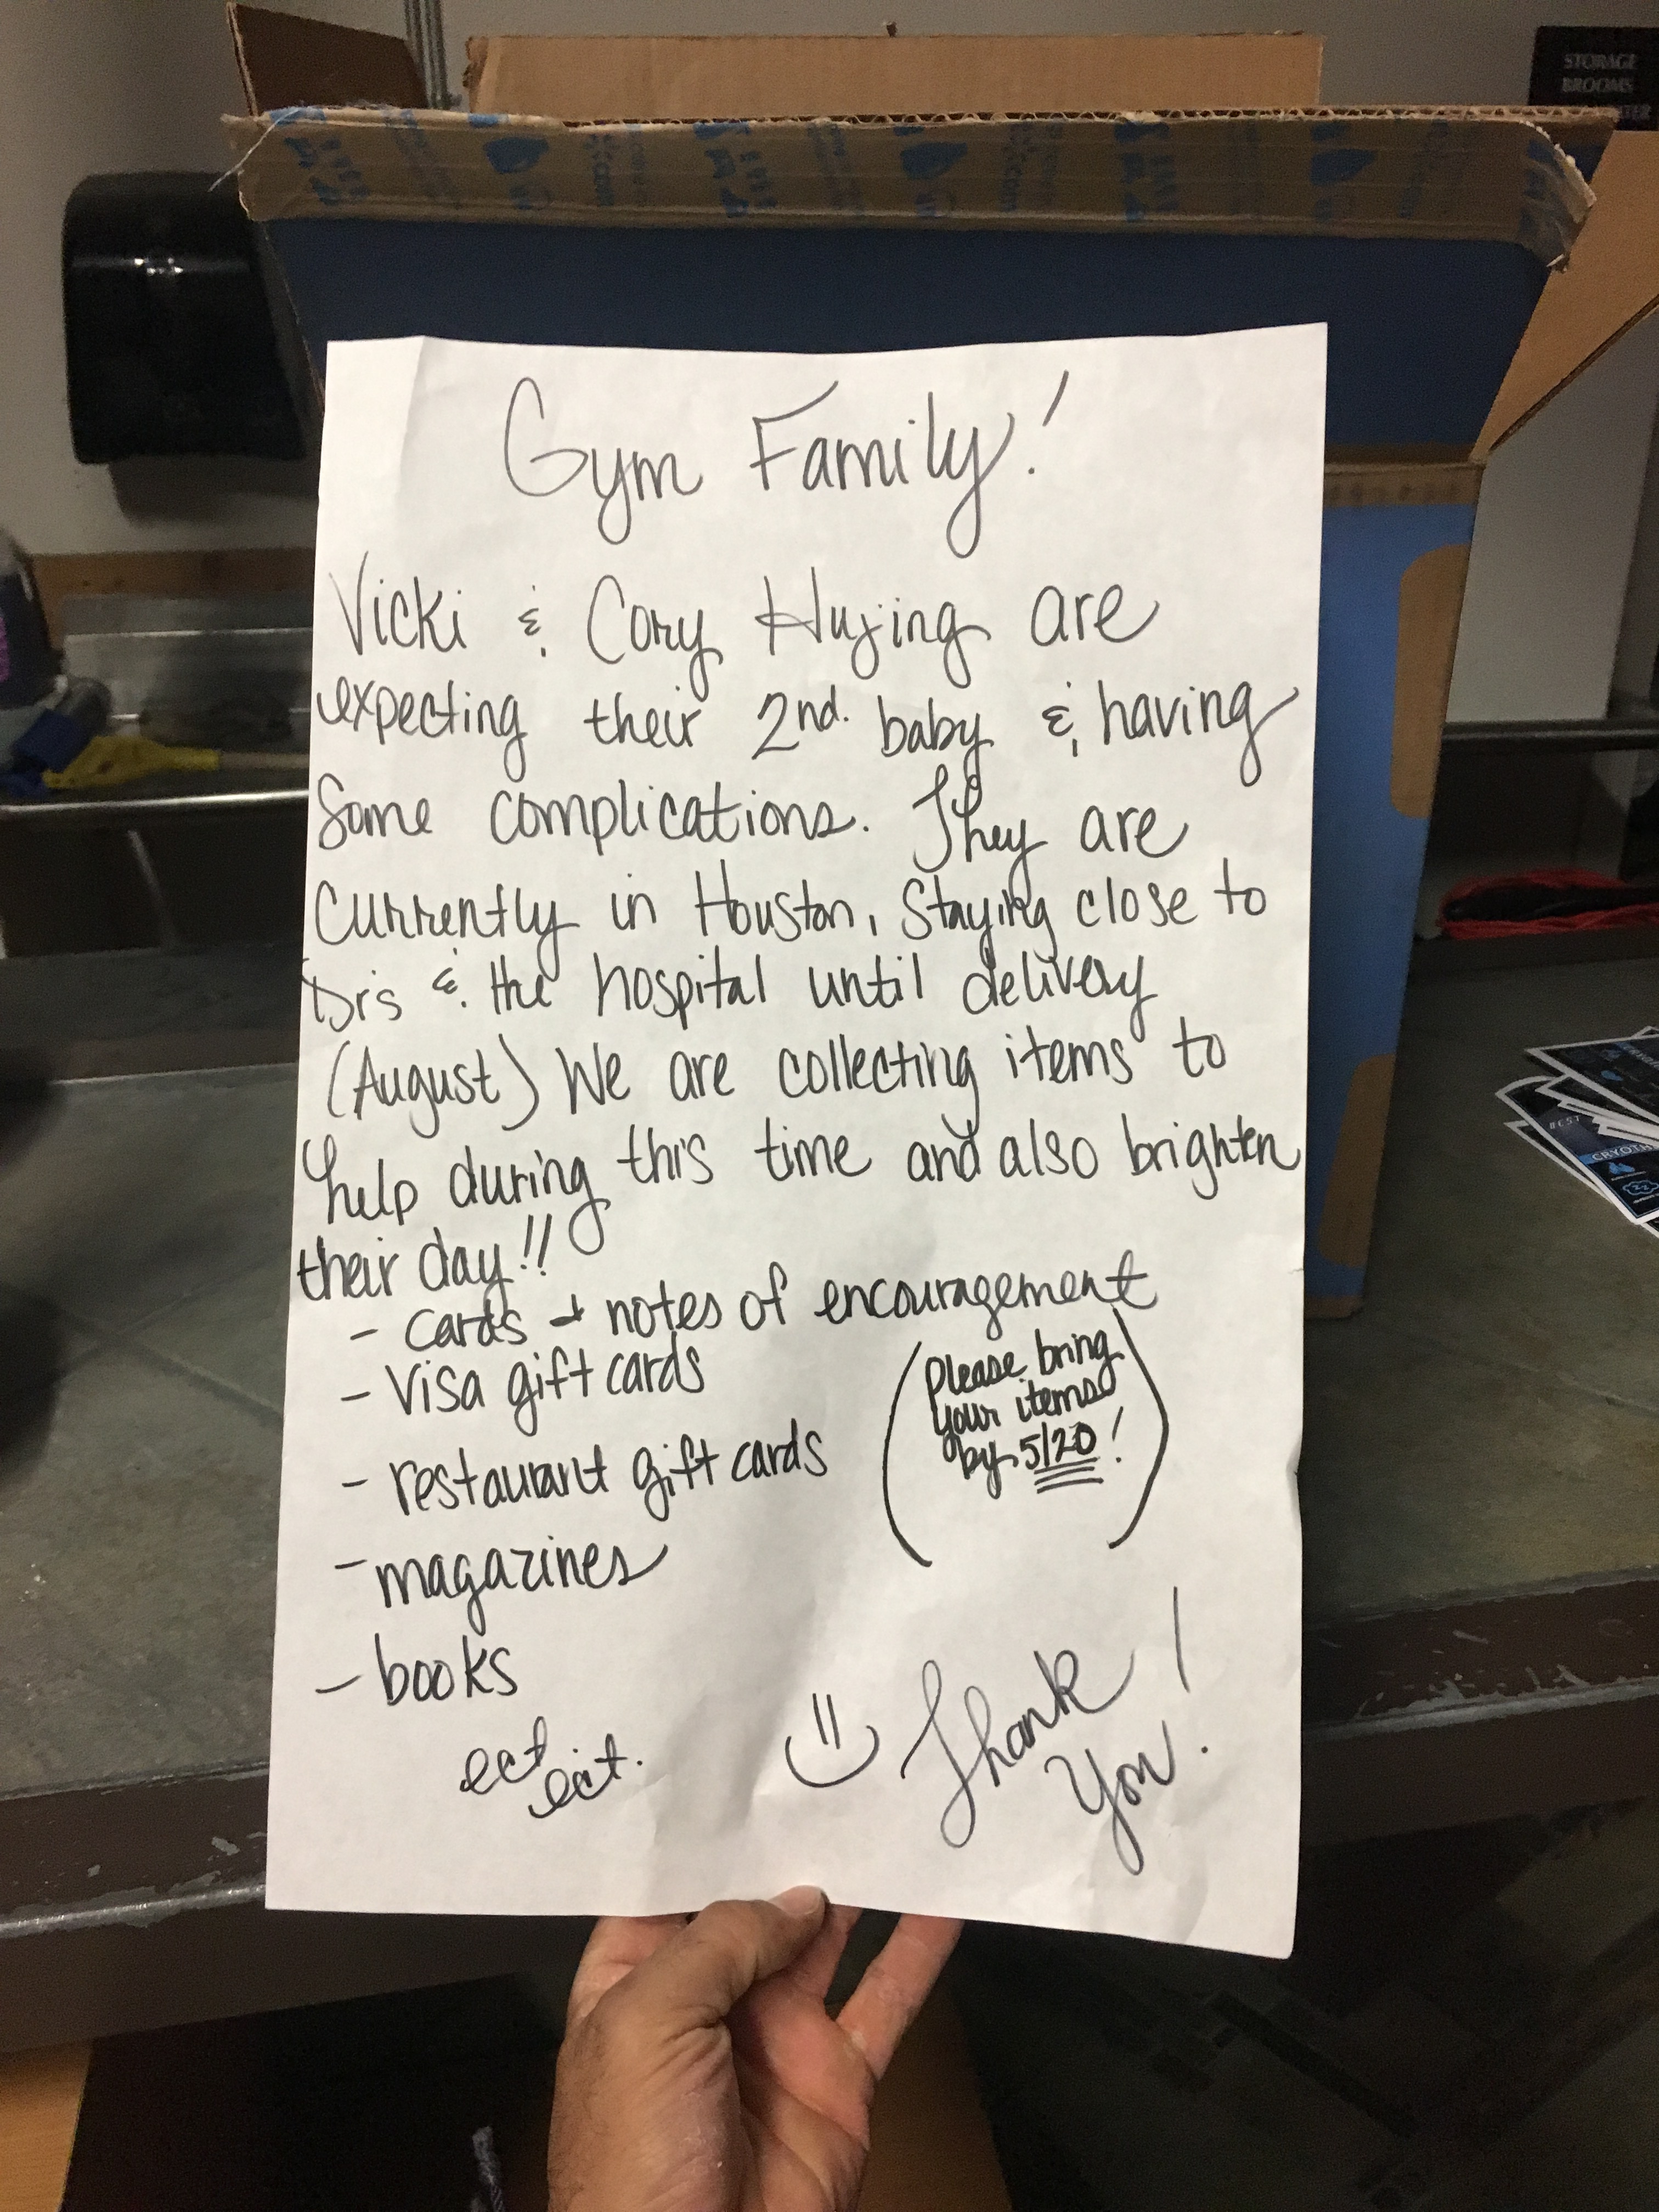 STORAGE
BROOMS
Gym Family!
Vicki & Cory Hujing are
expecting their 2nd. baby & having
Some complications. They are
Currently in Houston, Staying close to
Dr's & the hospital until delivery
(August) We are collecting items to
help during this time and also brighten
their day!!
- cards + notes of encouragement
- Visa gift cards
(Please bring
your items
by 5/20!)
- restaurant gift cards
- magazines
- books
ect. ect.
Thank
You!
BEST